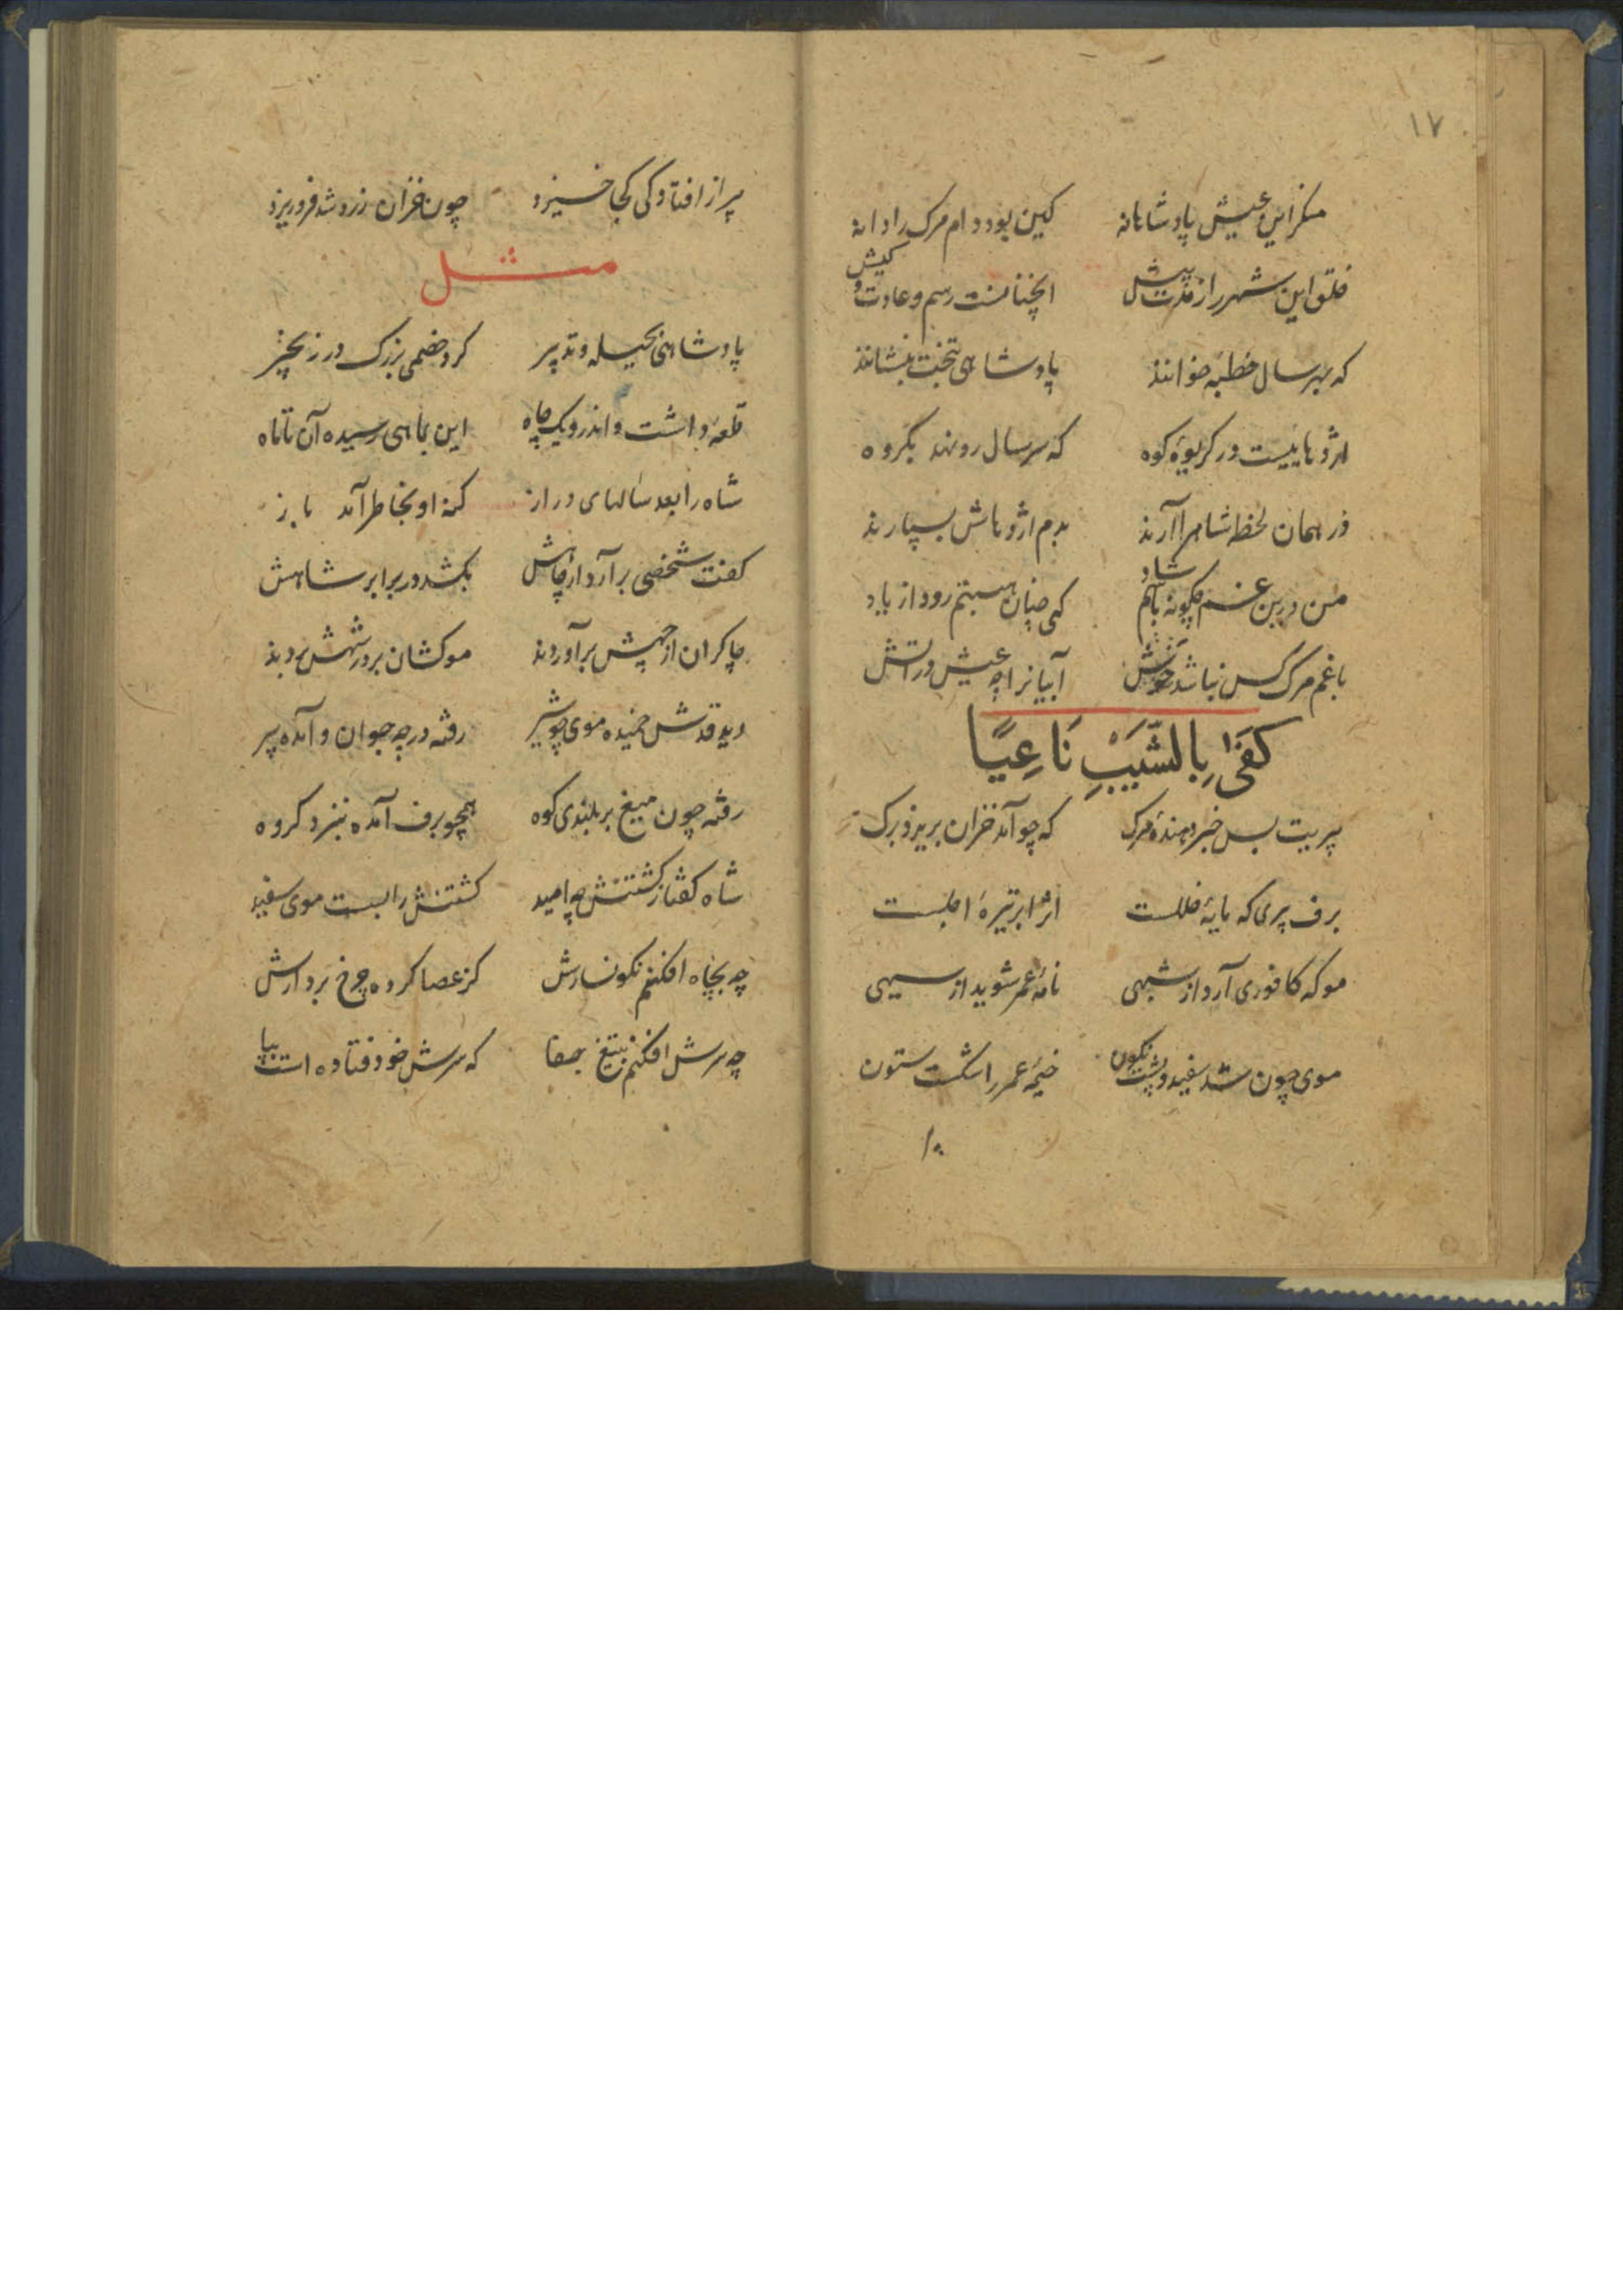 ١٧
منکر این عیش پادشاهانه کین بود دام مرک را دانه
خلق این شهر را ز مدت پیش اینچنانست رسم و عادت و کیش
که بهر سال خطبه خوانند پادشاهی بتخت بنشانند
اژدهاییست در کریوهٔ کوه که سر سال رو نهد بکروه
در همان لحظه شاهرا آرند بدم اژدهاش بسپارند
من درین غم چکونه باشم شاد کی چنان هیبتم رود از یاد
با غم مرک کس نباشد خوش آبیانرا چه عیش در آتش
کَفَیٰ بِالشَّیبِ نَاعِیًا
پیریت بس خبر دهندهٔ مرک که چو آمد خزان بریزد برک
برف پیری که مایهٔ خللست اثر ابر تیرهٔ اجلست
مو که کافوری آرد از شبهی نامهٔ عمر شوید از سیهی
موی چون شد سفید و پشت نکون خیمهٔ عمر را شکست ستون
پیر از افتادکی کجا خیزد چون خزان زرد شد فرو ریزد
مثل
پادشاهی بحیله و تدبیر کرد خصمی بزرک در زنجیر
قلعهٔ داشت و اندرو یک چاه این بماهی رسیده آن تا ماه
شاه را بعد سالهای دراز کنه او بخاطر آمد باز
کفت شخصی برآرد از چاهش بکشد در برابر شاهش
چاکران از چهش برآوردند موکشان بر در شهش بردند
دید قدش خمیده موی چو شیر رفته در چه جوان و آمده پیر
رفته چون میغ بر بلندی کوه همچو برف آمده بنزد کروه
شاه کفتا ز کشتنش چه امید کشتنش را بست موی سفید
چه بچاه افکنم نکونسارش کز عصا کرده چرخ بر دارش
چه سرش افکنم بتیغ جفا که سرش خود فتاده است بپا